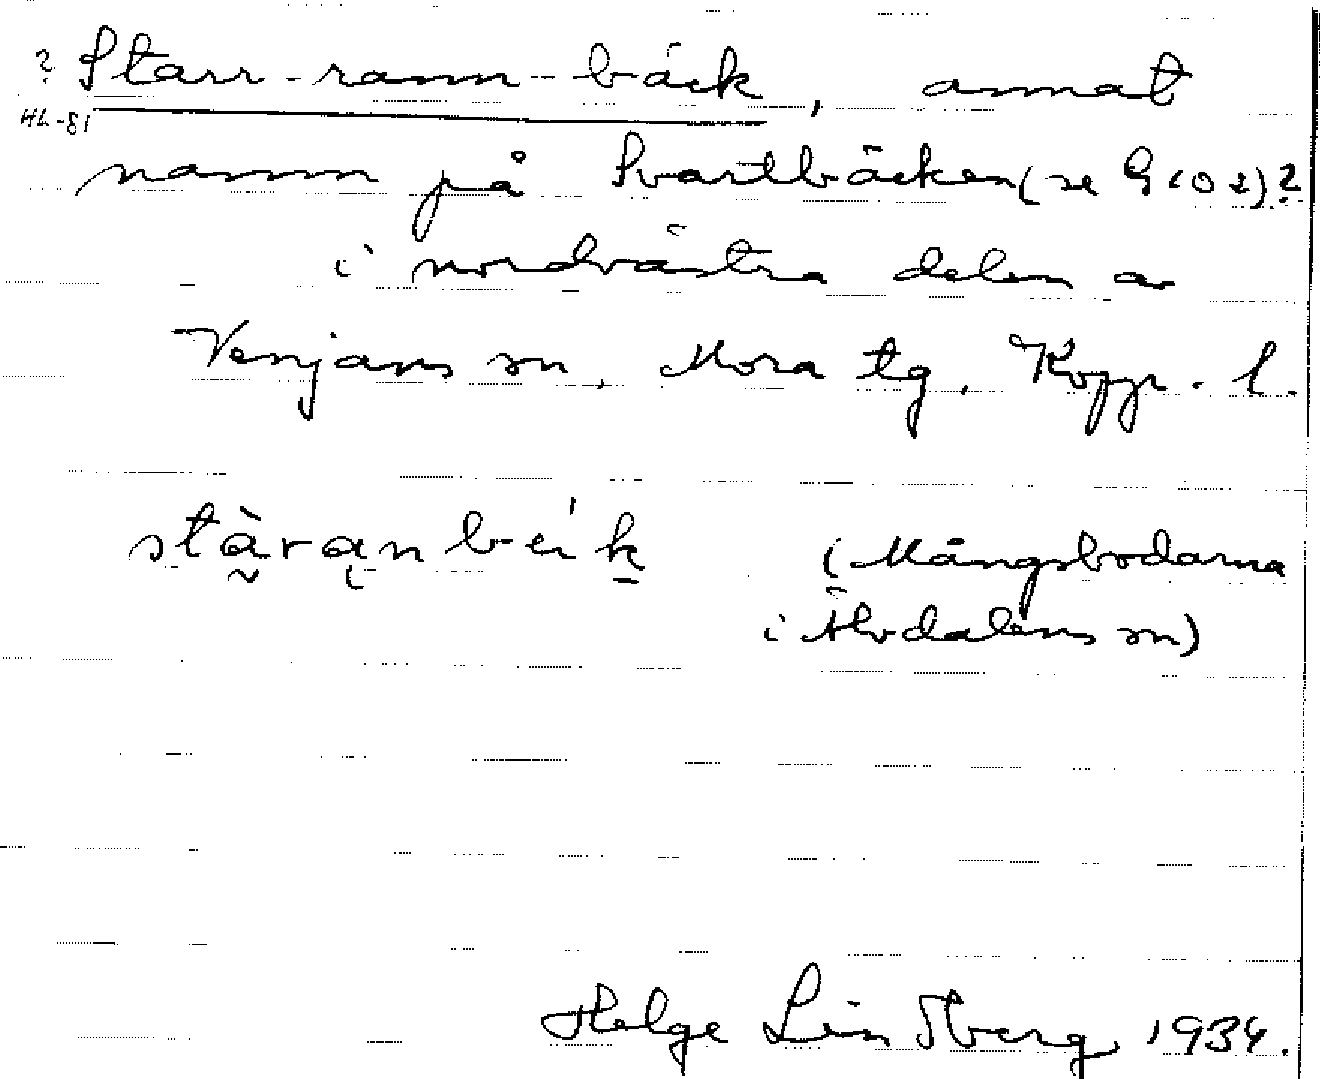 ? Starr-rann-bäck, annat
HL-81
namn på Svartbäcken (se G 10 2)?
i nordvästra delen av
Venjans sn, Mora tg, Kopp. l.
(i Mångsbodarna
i Älvdalens sn)
Helge Lindberg 1934.